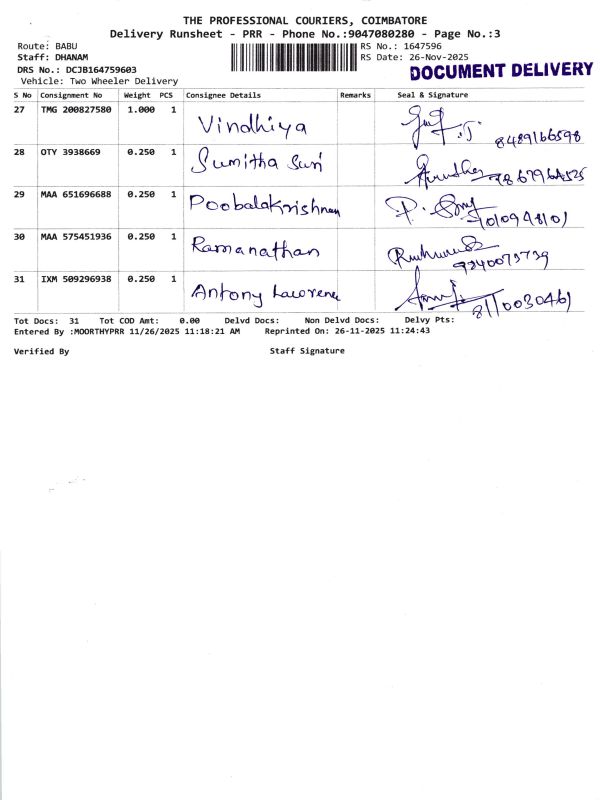 THE PROFESSIONAL COURIERS, COIMBATORE
Delivery Runsheet - PRR - Phone No.:9047080280 - Page No.:3
Route: BABU RS No.: 1647596
Staff: DHANAM RS Date: 26-Nov-2025
DRS No.: DCJB164759603 DOCUMENT DELIVERY
Vehicle: Two Wheeler Delivery
S No Consignment No Weight PCS Consignee Details Remarks Seal & Signature
27 TMG 200827580 1.000 1 Vindhiya
8489166598
28 OTY 3938669 0.250 1 Sumitha Suri
29 MAA 651696688 0.250 1 Poobalakrishnan
30 MAA 575451936 0.250 1 Ramanathan
31 IXM 509296938 0.250 1 Antony Lawrence
Tot Docs: 31 Tot COD Amt: 0.00 Delvd Docs: Non Delvd Docs: Delvy Pts:
Entered By :MOORTHYPRR 11/26/2025 11:18:21 AM Reprinted On: 26-11-2025 11:24:43
Verified By Staff Signature